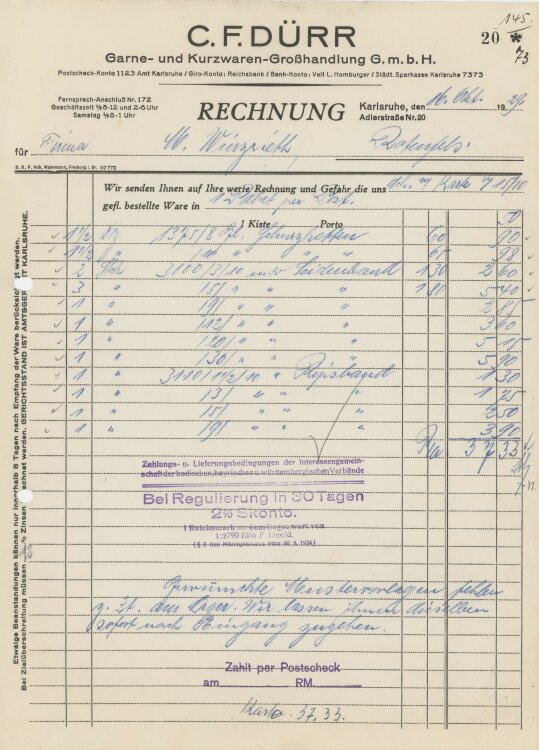 145.
20 * 73
C. F. DÜRR
Garne- und Kurzwaren-Großhandlung G. m. b. H.
Postscheck-Konto 1123 Amt Karlsruhe / Giro-Konto: Reichsbank / Bank-Konto: Veit L. Homburger / Städt. Sparkasse Karlsruhe 7373
Fernsprech-Anschluß Nr. 172
Geschäftszeit ½8-12 und 2-6 Uhr
Samstag ½8-1 Uhr
RECHNUNG
Karlsruhe, den 16. Okt. 1929.
Adlerstraße Nr. 20
für Firma
D. R. P. Hch. Wuhrmann, Freiburg i. Br. 92 773
Wir senden Ihnen auf Ihre werte Rechnung und Gefahr die uns
gefl. bestellte Ware in
1 Kiste Porto
1375/8 60 90
65 98
2 3100/3/10 Seidenband 130 2 60
3 " 15/ " " 180 5 40
1 " 19/ " " 2 85
1 " 112/ " " 3 60
1 " 120/ " " 5 15
1 " 130/ " " 5 90
1 " Ripsband 1 30
1 " 13/ " "
1 " 15/ " " 2 50
1 " 19/ " " 3 90
37 33
Zahlungs- u. Lieferungsbedingungen der Interessengemein-
schaft der badischen, bayrischen u. württembergischen Verbände
Bei Regulierung in 30 Tagen
2% Skonto.
1 Reichsmark = dem Gegenwert von
1:2790 Kilo F
Gewünschte Mustervorlagen fehlen
z. Zt. am Lager. Wir lassen ihnen dieselben
sofort nach Eingang zugehen.
Zahlt per Postscheck
am RM.
Karto. 37.33.
Etwaige Beanstandungen können nur innerhalb 8 Tagen nach Empfang der Ware berücksichtigt werden.
Bei Zielüberschreitung müssen % Zinsen gerechnet werden. GERICHTSSTAND IST AMTSGERICHT KARLSRUHE.